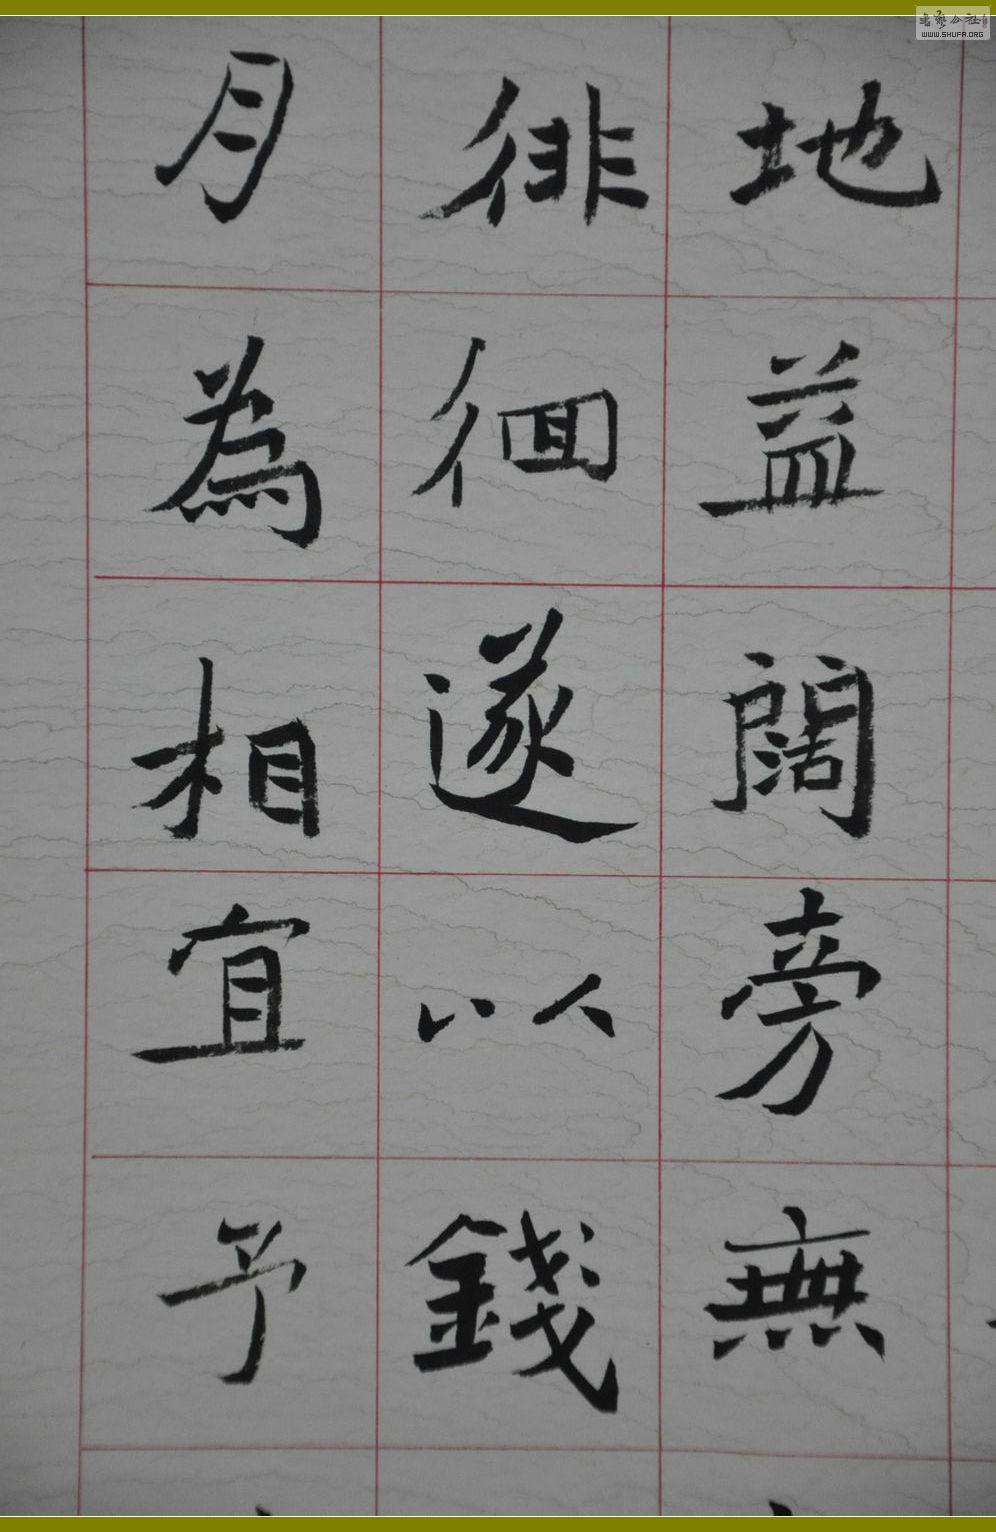 地益闊旁無
徘徊遂以錢
月為相宜予
WWW.SHUFA.ORG